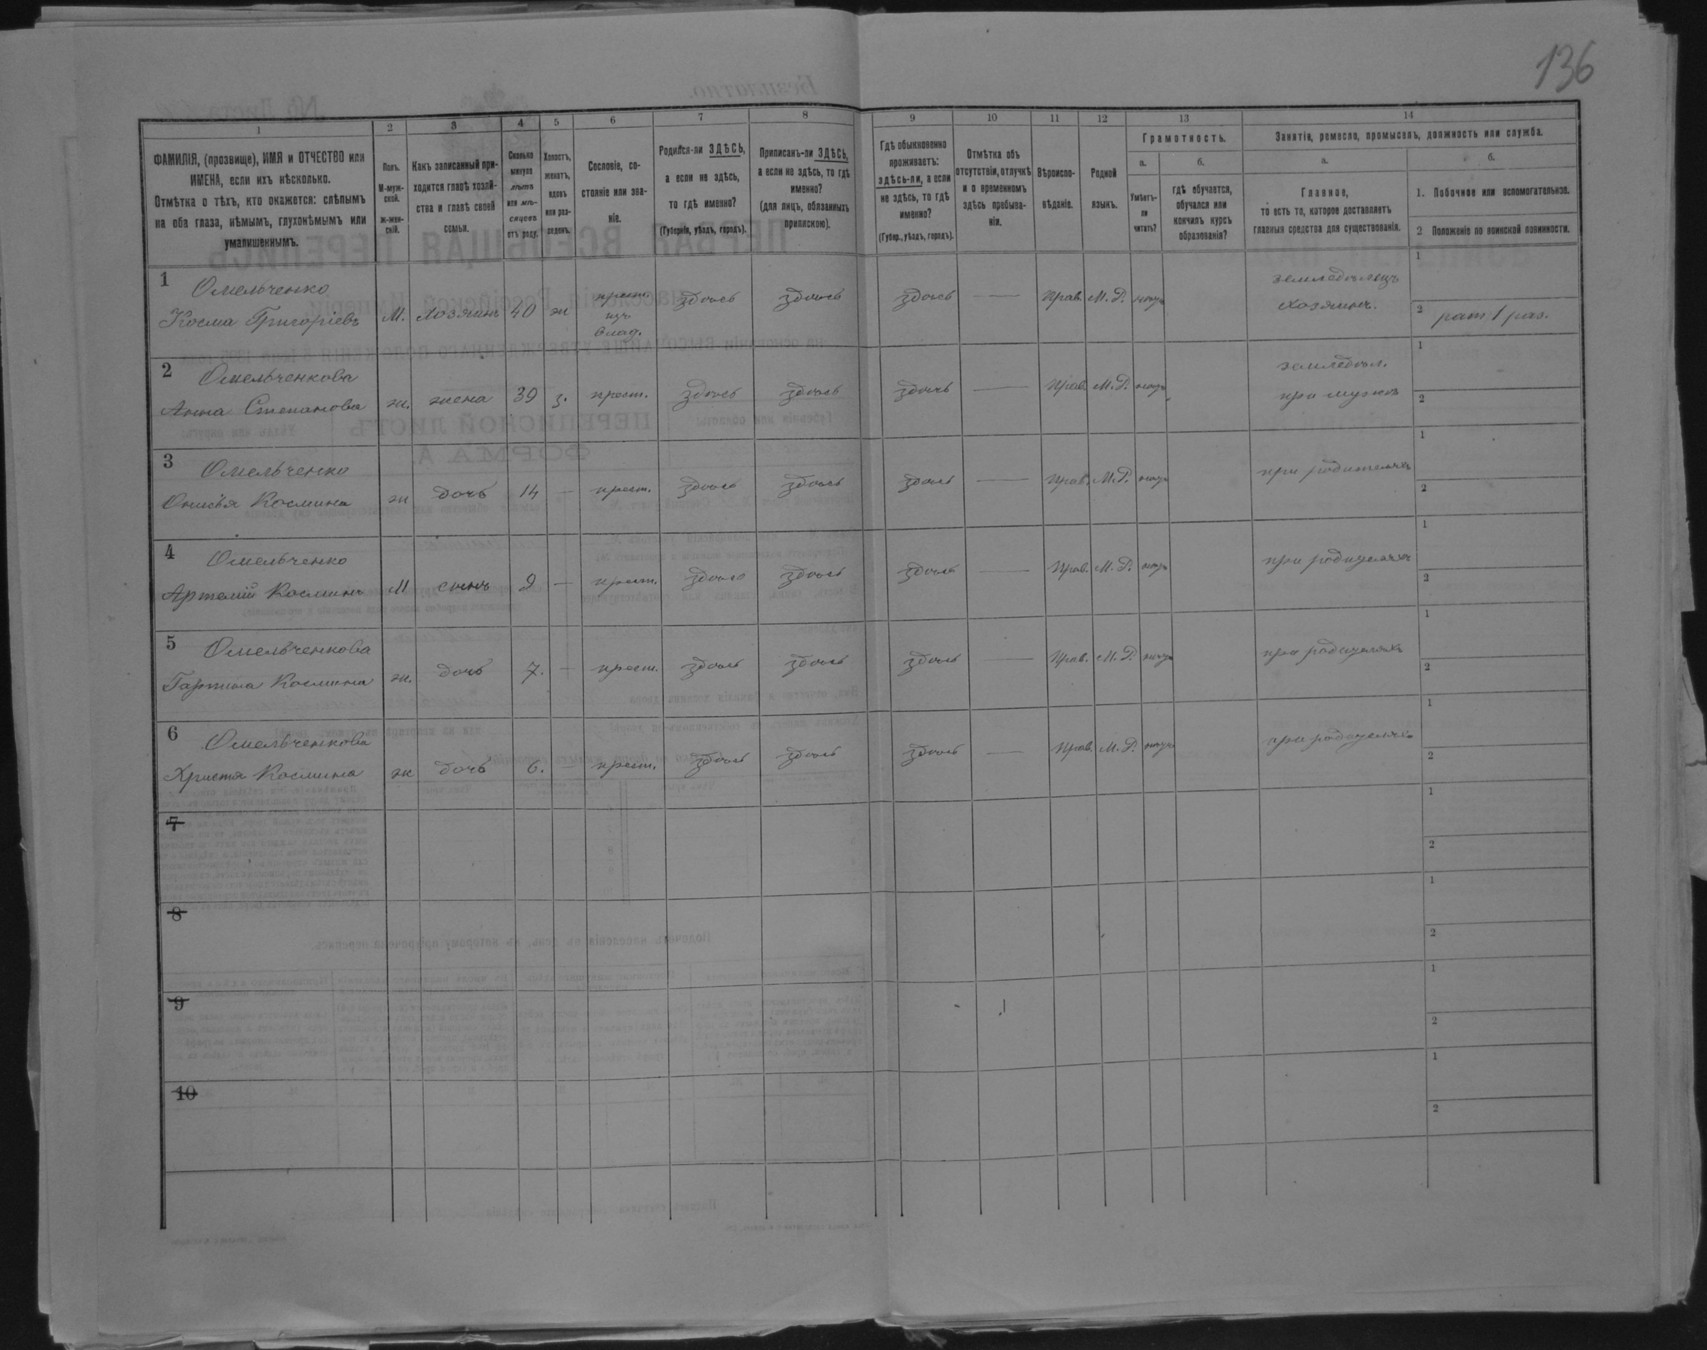 136
1
2
3
4
5
6
7
8
9
10
11
12
13
14
ФАМИЛІЯ, (прозвище), ИМЯ и ОТЧЕСТВО или
ИМЕНА, если ихъ нѣсколько.
Отмѣтка о тѣхъ, кто окажется: слѣпымъ
на оба глаза, нѣмымъ, глухонѣмымъ или
умалишеннымъ.
Полъ.
М-муж-
ской.
Ж-жен-
скій.
Какъ записанный при-
ходится главѣ хозяй-
ства и главѣ своей
семьи.
Сколько
минуло
лѣтъ
или мѣ-
сяцевъ
отъ роду.
Холостъ,
женатъ,
вдовъ
или раз-
веденъ.
Сословіе, со-
стояніе или зва-
ніе.
Родился-ли ЗДѢСЬ,
а если не здѣсь,
то гдѣ именно?
(Губернія, уѣздъ, городъ).
Приписанъ-ли ЗДѢСЬ,
а если не здѣсь, то гдѣ
именно?
(для лицъ, обязанныхъ
припискою).
Гдѣ обыкновенно
проживаетъ:
здѣсь-ли, а если
не здѣсь, то гдѣ
именно?
(Губер., уѣздъ, городъ).
Отмѣтка объ
отсутствіи, отлучкѣ
и о временномъ
здѣсь пребыва-
ніи.
Вѣроиспо-
вѣданіе.
Родной
языкъ.
Грамотность.
а.
б.
Умѣетъ-
ли
читать?
гдѣ обучается,
обучался или
кончилъ курсъ
образованія?
Занятія, ремесло, промыселъ, должность или служба.
а.
б.
Главное,
то есть то, которое доставляетъ
главныя средства для существованія.
1. Побочное или вспомогательное.
2 Положеніе по воинской повинности.
1 Омельченко
Косма Григоріевъ М. хозяинъ 40 ж крест. изъ влад. здѣсь здѣсь здѣсь — Прав. М. Р. нѣтъ земледѣлецъ хозяинъ. 1 2 рат 1 раз.
2 Омельченкова
Анна Степанова ж. жена 39 з. крест. здѣсь здѣсь здѣсь — Прав. М. Р. нѣтъ земледѣл. при мужѣ 1 2
3 Омельченко
Космина ж дочь 14 — крест. здѣсь здѣсь здѣсь — Прав. М. Р. нѣтъ при родителяхъ 1 2
4 Омельченко
Артемій Косминъ М сынъ 9 — крест. здѣсь здѣсь здѣсь — Прав. М. Р. нѣтъ при родителяхъ 1 2
5 Омельченкова
Гарпина Космина ж. дочь 7. — крест. здѣсь здѣсь здѣсь — Прав. М. Р. нѣтъ при родителяхъ 1 2
6 Омельченкова
Христя Космина ж дочь 6. — крест. здѣсь здѣсь здѣсь — Прав. М. Р. нѣтъ при родителяхъ 1 2
7 1 2
8 1 2
9 1 2
10 1 2